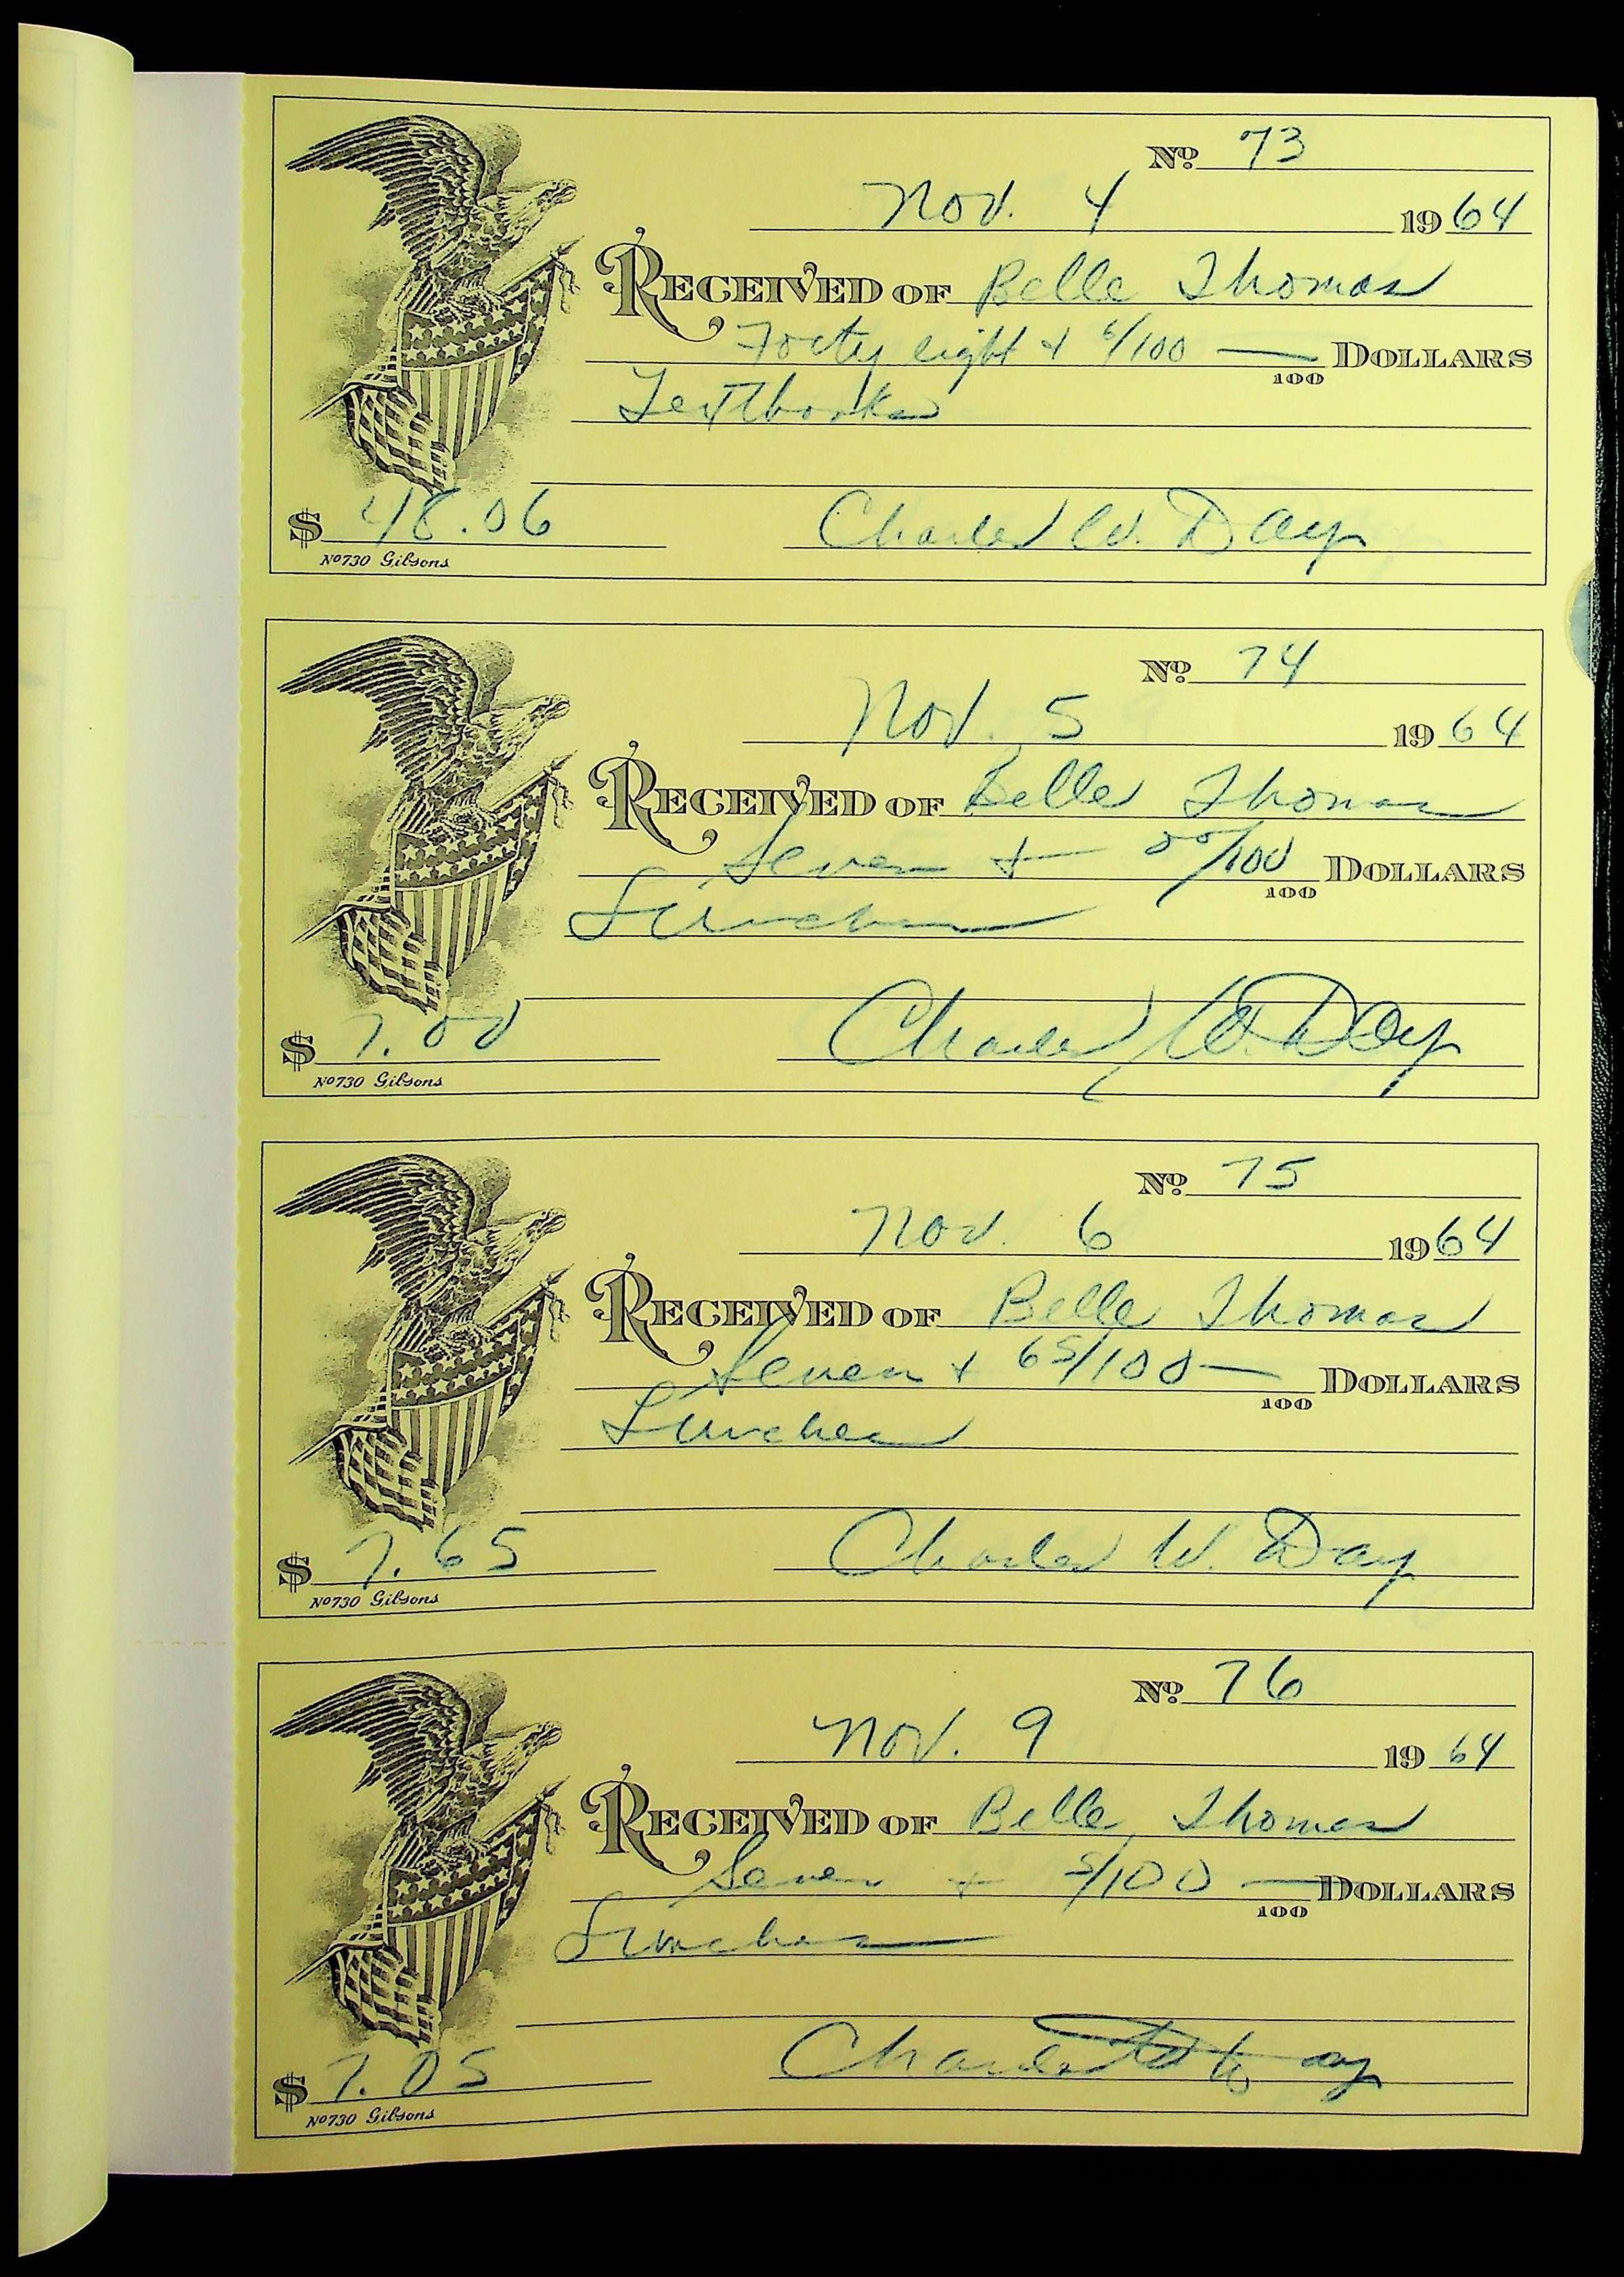 No. 73
Nov. 4 1964
RECEIVED OF Belle Thomas
Forty eight + 6/100 — DOLLARS
100
Textbooks
$ 48.06 Charles W. Day
No 730 Gibsons
No. 74
Nov. 5 1964
RECEIVED OF Belle Thomas
Seven + 00/100 DOLLARS
100
Lunches
$ 7.00 Charles W. Day
No 730 Gibsons
No. 75
Nov. 6 1964
RECEIVED OF Belle Thomas
Seven + 65/100 — DOLLARS
100
Lunches
$ 7.65 Charles W. Day
No 730 Gibsons
No. 76
Nov. 9 1964
RECEIVED OF Belle Thomas
Seven + 5/100 — DOLLARS
100
Lunches
$ 7.05 Charles W Day
No 730 Gibsons